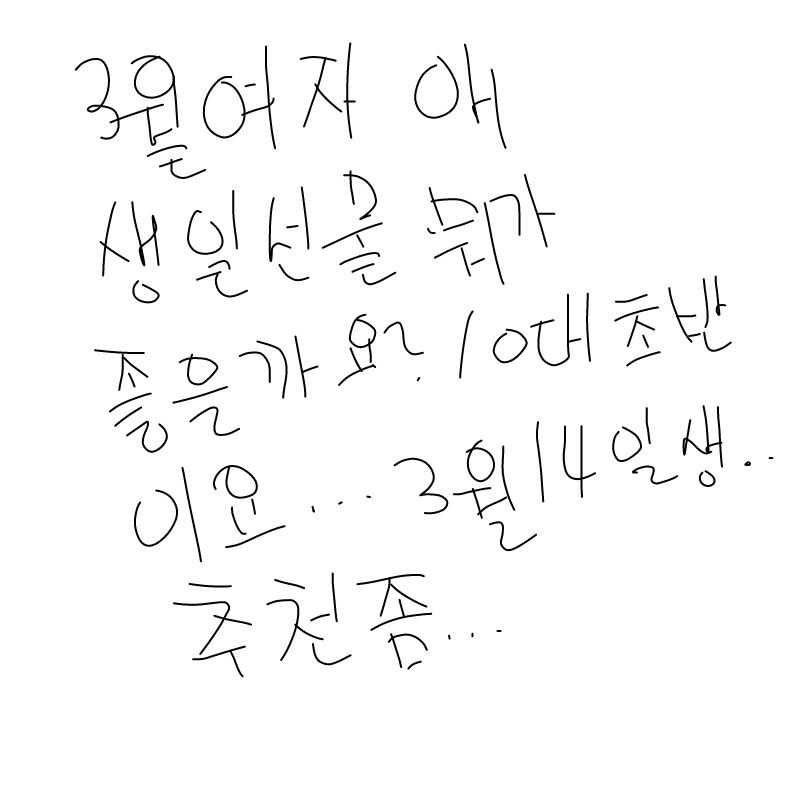 3월여자 애
생일선물 뭐가
좋을까요? 10대초반
이요... 3월14일생..
추천좀...